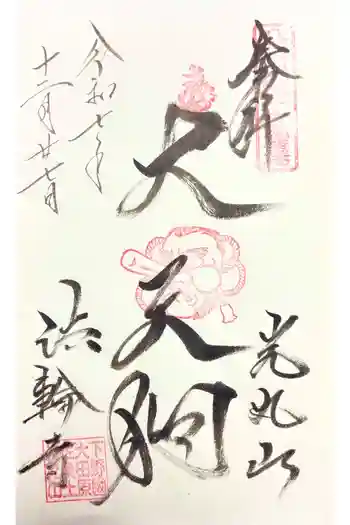 奉拝
光丸山
大
天狗
令和七年
十二月廿七日
法輪寺